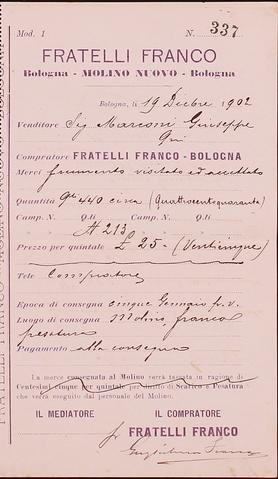 Mod. 1 N. 337
FRATELLI FRANCO
Bologna - MOLINO NUOVO - Bologna
Bologna, li 19 Dicbre 1902
Venditore Sig Marconi Giuseppe
Qui
Compratore FRATELLI FRANCO - BOLOGNA
Merci frumento visitato ed accettato
Quantità Qli 440 circa (Quattrocentoquaranta)
Camp. N. Q.li Camp. N. Q.li
A 213
Prezzo per quintale £ 25 - (Venticinque)
Tele Compratore
Epoca di consegna cinque Gennaio p. v.
Luogo di consegna Molino, franco
pesatura
Pagamento alla consegna
La merce consegnata al Molino verrà tassata in ragione di
Centesimi cinque per quintale per diritto di Scarico e Pesatura
che verrà eseguito dal personale del Molino.
IL MEDIATORE IL COMPRATORE
p. FRATELLI FRANCO
Guglielmo